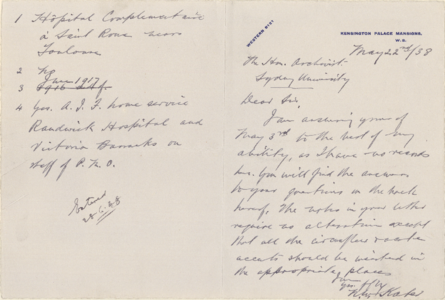 1 Hôpital Complementaire
à Saint Rome near
Toulouse
2 No
June 1917
3
4 Yes. A.I.F. home service
Randwick Hospital and
Victoria Barracks on
staff of P.M.O.
Entered
WESTERN 6121
KENSINGTON PALACE MANSIONS,
W.8.
May 22nd/38
The Hon. Archivist
Sydney University
Dear Sir,
I am answering yours of
May 3rd to the best of my
ability, as I have no records
here. You will find the answers
to your questions on the back
hereof. The notes in your letter
require no alteration except
that all the circumflex
accents should be inserted in
the appropriate places
Yours